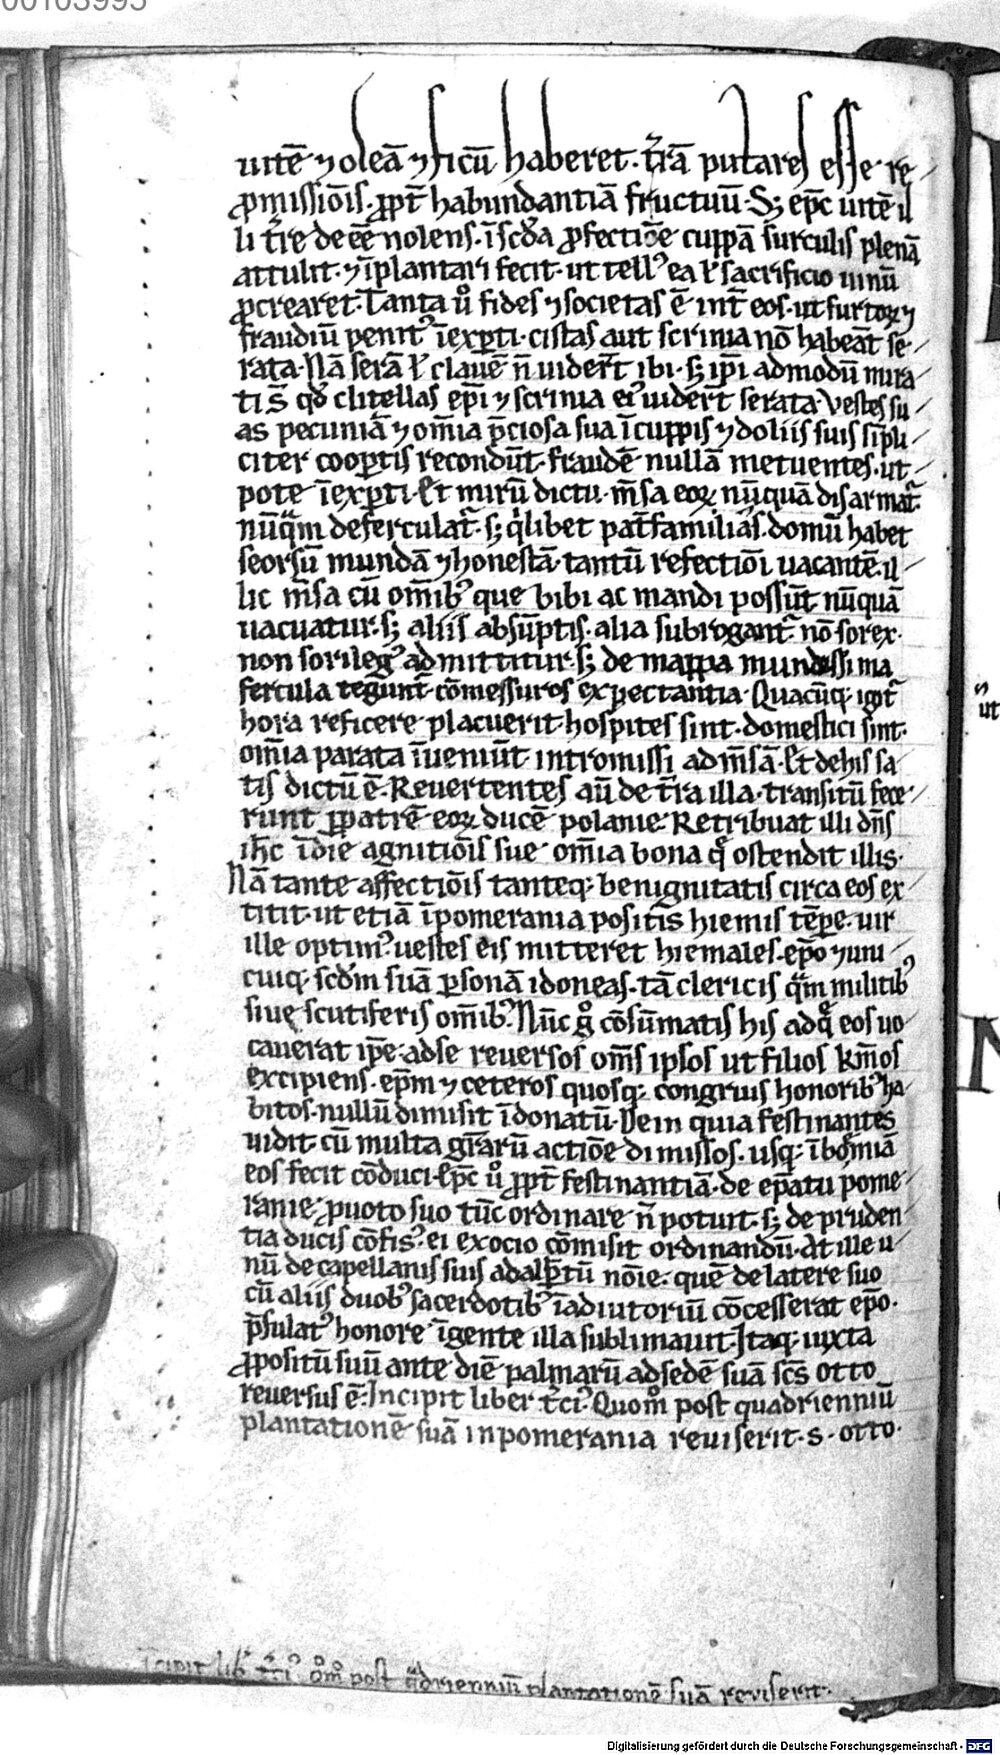 00103993
uitē ⁊ oleā ⁊ ficū haberet. t̄rā putares esse re
ꝓmissiōis. ꝓpt̄ habundantiā fructuū. S; ep̄c uitē il
li t̄re deēe nolens. ī sc̄da ꝓfectiōe cuppā surculis plenā
attulit. ⁊ īplantari fecit. ut tell᷒ ea ł sacrificio uinū
ꝓcrearet. Tanta u̇ fides ⁊ societas ē int̄ eos. ut furtoꝝ ⁊
fraudiū penit᷒ īexꝑti. cistas aut scrinia nō habeāt se
rata. Nā serā ł clauē n̄ uider̄t ibi. s; ip̄i admodū mira
ti s̄ qđ clitellas ep̄i ⁊ scrinia ei᷒ uider̄t serata. Vestes su
as pecuniā ⁊ om̄ia p̄ciosa sua ī cuppis ⁊ doliis suis sīpli
citer cooꝑtis recondūt. fraudē nullā metuentes. ut
pote īexꝑti. Et mirū dictu. m̄sa eoꝝ nūquā disarmat᷑.
nūqͣm deferculat᷑. s; qͥlibet pat̄familias. domū habet
seorsū mundā ⁊ honestā. tantū refectiōi uacantē. il
lic m̄sa cū om̄ib᷒ que bibi ac mandi possūt nūquā
uacuatur. s; aliis absūptis. alia subrogant᷑. nō sorex.
non sorileg᷒ admittitur. s; de mappa mundissima
fercula tegunt᷑. cōmessuros expectantia. Quacūq; igit᷑
hora reficere placuerit. hospites sint. domestici sint.
om̄ia parata īueniūt intromissi ad m̄sā. Et de his sa
tis dictū ē. Reuertentes aū de t̄ra illa. transitū fece
runt ꝑ patrē eoꝝ ducē polanie. Retribuat illi dn̄s
ih̄c ī die agnitiōis sue om̄ia bona q̄ ostendit illis.
Nā tante affectiōis tanteq; benignitatis circa eos ex
titit. ut etiā ī pomerania positis hiemis tēpe. uir
ille optim᷒ uestes eis mitteret hiemales. ep̄o ⁊ uni
cuiq; scđm suā ꝑsonā idoneas. tā clericis qͣm militib᷒
siue scutiferis om̄ib᷒. Nūc gͦ cōsūmatis his ad q̄ eos uo
cauerat ip̄e. ad se reuersos om̄s ipsos ut filios kr̄mos
excipiens. ep̄m ⁊ ceteros quosq; congruis honorib᷒ ha
bitos. nullū dimisit īdonatū. Dein quia festinantes
uidit. cū multa gr̄arū actiōe dimissos. usq; ī boemiā
eos fecit cōduci. Ep̄c u̇ ꝓpt̄ festinantiā. de ep̄atu pome
ranie. ꝓ uoto suo tūc ordinare n̄ potuit. s; de pruden
tia ducis cōfis᷒. ei ex ocio cōmisit ordinandū. At ille u
nū de capellanis suis adalꝑtū nōie. quē de latere suo
cū aliis duob᷒ sacerdotib᷒ ī adiutoriū cōcesserat ep̄o.
p̄sulat᷒ honore īgente illa sublimauit. Itaq; iuxta
ꝓpositū suū ante diē palmarū ad sedē suā sc̄s otto
reuersus ē. Incipit liber t̄ci᷒. Quom̊ post quadrienniū
plantationē suā in pomerania reuiserit. s. otto.
Īcipit lib̄ t̄ci᷒ q̊m̊ post qͣdrienniū plantationē suā reviserit.
ut
Digitalisierung gefördert durch die Deutsche Forschungsgemeinschaft - DFG